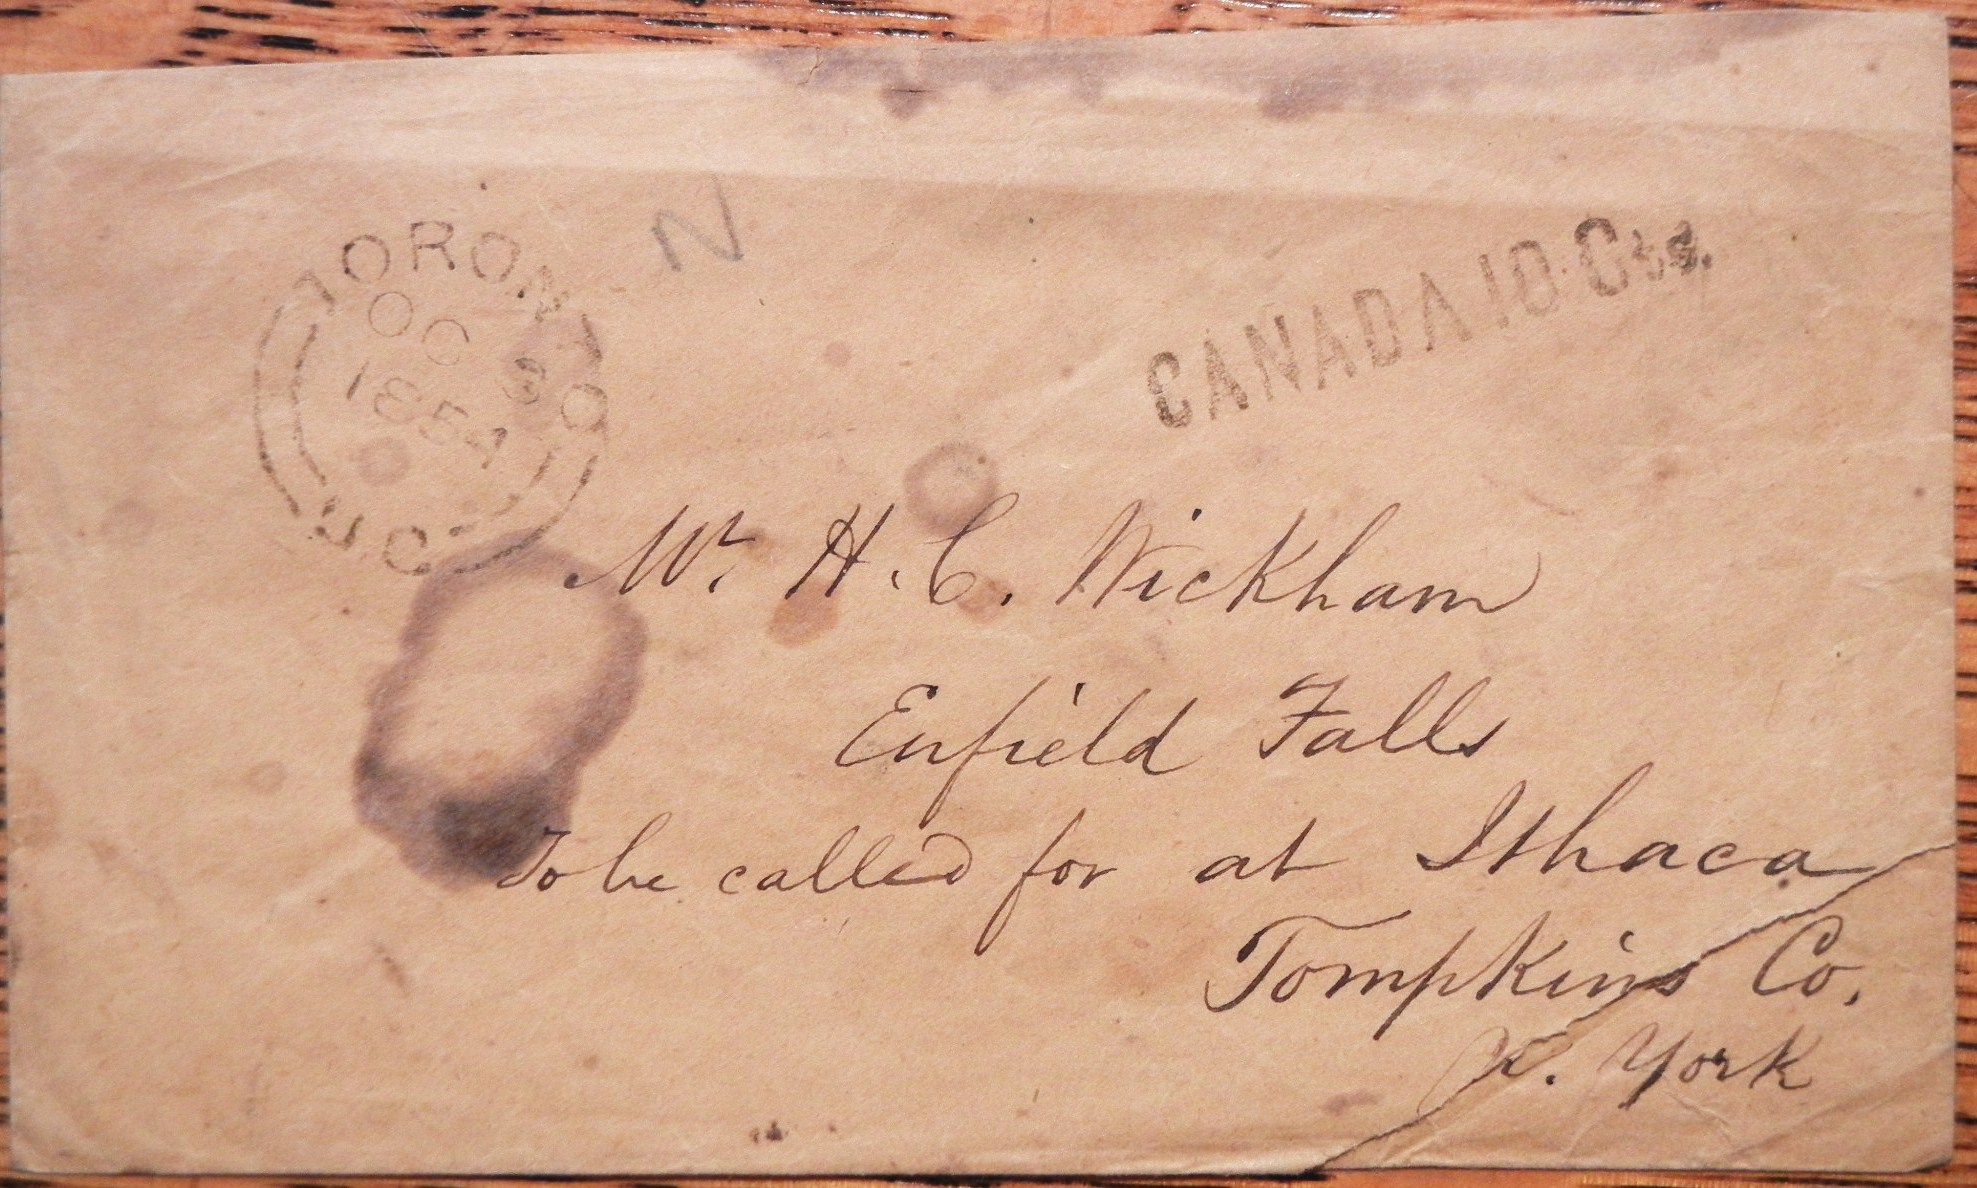 TORONTO
OC 30
1854
U.C.
N
CANADA 10 Cts.
Mr. H. C. Wickham
Enfield Falls
To be called for at Ithaca
Tompkins Co.
N. York